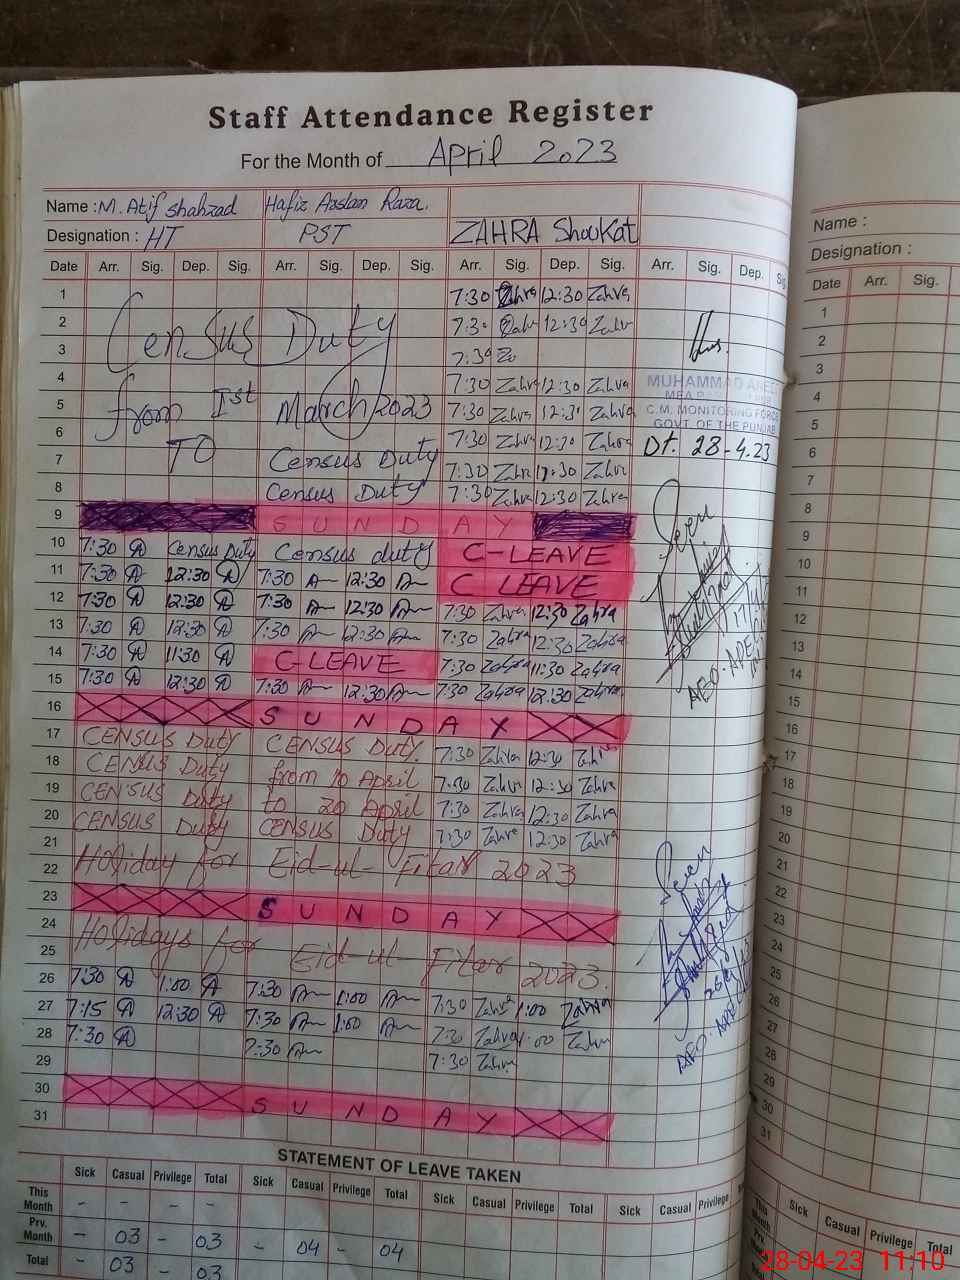 Staff Attendance Register
For the Month of April 2023
Name : M. Atif Shahzad Hafiz Arslan Raza.
Designation : HT PST ZAHRA Shoukat
Date Arr. Sig. Dep. Sig. Arr. Sig. Dep. Sig. Arr. Sig. Dep. Sig. Arr. Sig. Dep.
1 7:30 Zahra 12:30 Zahra
2 Census Duty 7:30 Zahr 12:30 Zahr
3 7:30 Za
4 7:30 Zahra 12:30 Zahra
5 from Ist March 2023 7:30 Zahra 12:30 Zahra
6 TO 7:30 Zahra 12:30 Zahra
7 Census Duty 7:30 Zahra 12:30 Zahr
8 Census Duty 7:30 Zahra 12:30 Zahra
MUHAMMAD
C.M. MONITORING FORCE
GOVT. OF THE PUNJAB
Dt. 28-4.23
9 SUNDAY
10 7:30 Census Duty Census duty C-LEAVE
11 7:30 12:30 7:30 12:30 C LEAVE
12 7:30 12:30 7:30 12:30 7:30 Zahra 12:30 Zahra
13 7:30 12:30 7:30 12:30 7:30 Zahra 12:30 Zahra
14 7:30 11:30 C-LEAVE 7:30 Zahra 11:30 Zahra
15 7:30 12:30 7:30 12:30 7:30 Zahra 12:30 Zahra
16 SUNDAY
17 CENSUS Duty CENSUS Duty 7:30 Zahra 12:30 Zahra
18 CENSUS Duty from 10 April 7:30 Zahra 12:30 Zahra
19 CENSUS Duty to 20 April 7:30 Zahra 12:30 Zahra
20 CENSUS Duty CENSUS Duty 7:30 Zahra 12:30 Zahra
21
22 Holiday for Eid-ul-Fitar 2023
23 SUNDAY
24 Holidays for Eid-ul-Fitar 2023.
25
26 7:30 1:00 7:30 1:00 7:30 Zahra 1:00 Zahra
27 7:15 12:30 7:30 1:00 7:30 Zahra 1:00 Zahra
28 7:30 7:30 7:30 Zahra
29
30 SUNDAY
31
STATEMENT OF LEAVE TAKEN
Sick Casual Privilege Total Sick Casual Privilege Total Sick Casual Privilege Total Sick Casual Privilege
This Month - - - -
Prv. Month - 03 - 03 - 04 - 04
Total - 03 - 03
Name :
Designation :
Date Arr. Sig.
1
2
3
4
5
6
7
8
9
10
11
12
13
14
15
16
17
18
19
20
21
22
23
24
25
26
27
28
29
30
31
Sick Casual Privilege Total
This Month
28-04-23 11:10